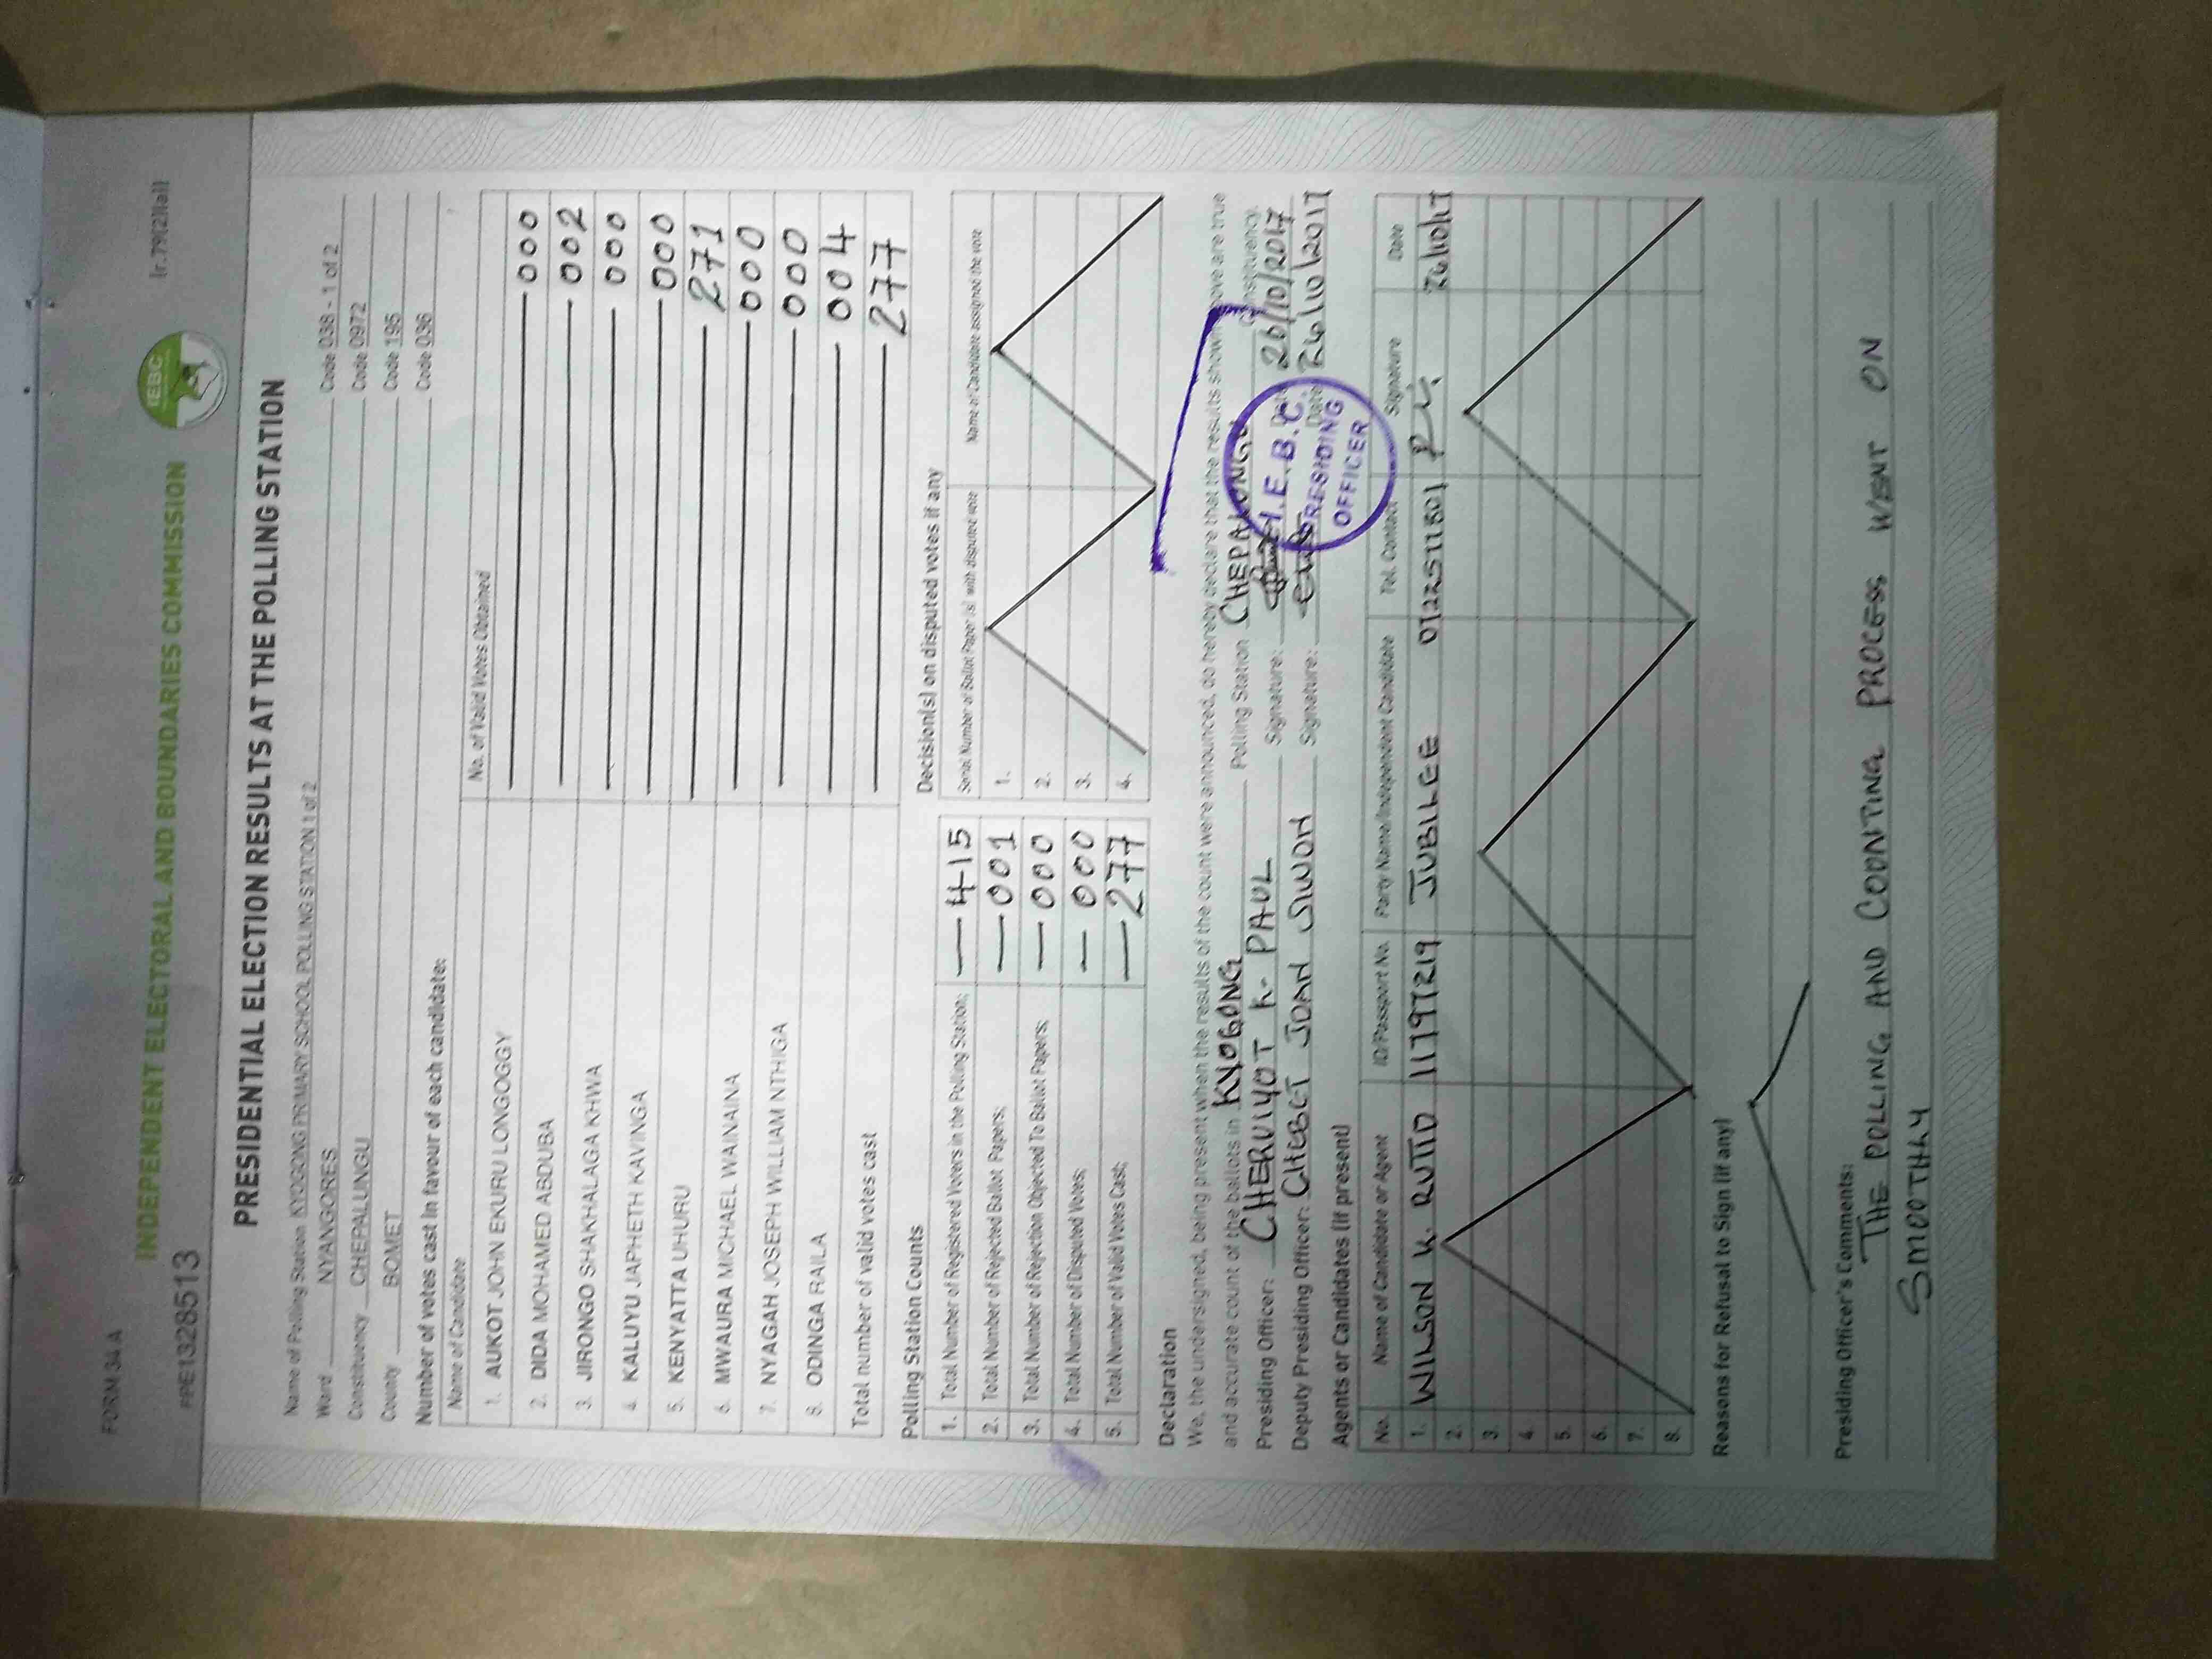 FORM 34A
INDEPENDENT ELECTORAL AND BOUNDARIES COMMISSION
IEBC
(r.79(2)(a))
PRE1328513
PRESIDENTIAL ELECTION RESULTS AT THE POLLING STATION
Name of Polling Station KYOGONG PRIMARY SCHOOL POLLING STATION 1 of 2 Code 038 - 1 of 2
Ward NYANGORES Code 0972
Constituency CHEPALUNGU Code 195
County BOMET Code 036
Number of votes cast in favour of each candidate:
Name of Candidate No. of Valid Votes Obtained
1. AUKOT JOHN EKURU LONGOGGY 000
2. DIDA MOHAMED ABDUBA 002
3. JIRONGO SHAKHALAGA KHWA 000
4. KALUYU JAPHETH KAVINGA 000
5. KENYATTA UHURU 271
6. MWAURA MICHAEL WAINAINA 000
7. NYAGAH JOSEPH WILLIAM NTHIGA 000
8. ODINGA RAILA 004
Total number of valid votes cast 277
Polling Station Counts
1. Total Number of Registered Voters in the Polling Station; 415
2. Total Number of Rejected Ballot Papers; 001
3. Total Number of Rejection Objected To Ballot Papers; 000
4. Total Number of Disputed Votes; 000
5. Total Number of Valid Votes Cast; 277
Decision(s) on disputed votes if any
Serial Number of Ballot Paper (s) with disputed vote Name of Candidate assigned the vote
1.
2.
3.
4.
Declaration
We, the undersigned, being present when the results of the count were announced, do hereby declare that the results shown above are true
and accurate count of the ballots in KYOGONG Polling Station CHEPALUNGU Constituency.
Presiding Officer: CHERUIYOT K. PAUL Signature: Date 26/10/2017
Deputy Presiding Officer: CHEBET JOAN Signature: Date 26/10/2017
I.E.B.C.
PRESIDING
OFFICER
Agents or Candidates (if present)
No. Name of Candidate or Agent ID/Passport No. Party Name/Independent Candidate Tel. Contact Signature Date
1. WILSON K. RUTTO 11197219 JUBILEE 26/10/17
2.
3.
4.
5.
6.
7.
8.
Reasons for Refusal to Sign (if any)
Presiding Officer's Comments:
THE POLLING AND COONTING PROCESS WENT ON
SMOOTHLY